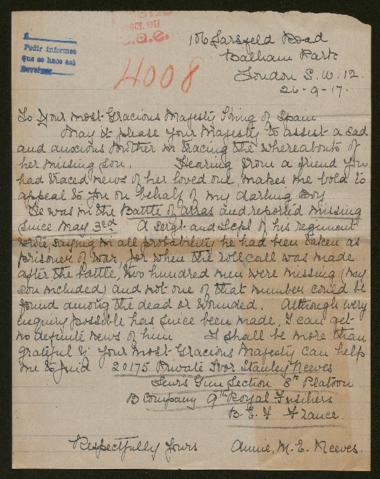 Pedir informes
que se hace así
Devolver
OCT. 1917
4008
106 Sarsfeld Road
Balham Park
London S.W. 12.
26-9-17.
To Your most Gracious Majesty King of Spain
May it please Your Majesty to assist a sad
and anxious Mother in tracing the whereabouts of
her missing son. Hearing from a friend You
had traced news of her loved one, makes me bold to
appeal to You on behalf of my darling Boy
He was in the Battle of Arras and reported missing
since May 3rd. A Sergt and Lcpl of his regiment
wrote saying in all probability he had been taken as
prisoner of War, for when the rollcall was made
after the battle, two hundred men were missing (my
son included) and not one of that number could be
found among the dead or wounded. Although every
enquiry possible has since been made, I can get
no definite news of him I shall be more than
grateful if Your most Gracious Majesty can help
me to find 20175 Private Ivor Stanley Neeves
Lewis Gun Section 8th Platoon
B Company 9th Royal Fusiliers
B. E. F. France.
Respectfully Yours Annie. M. E. Neeves.